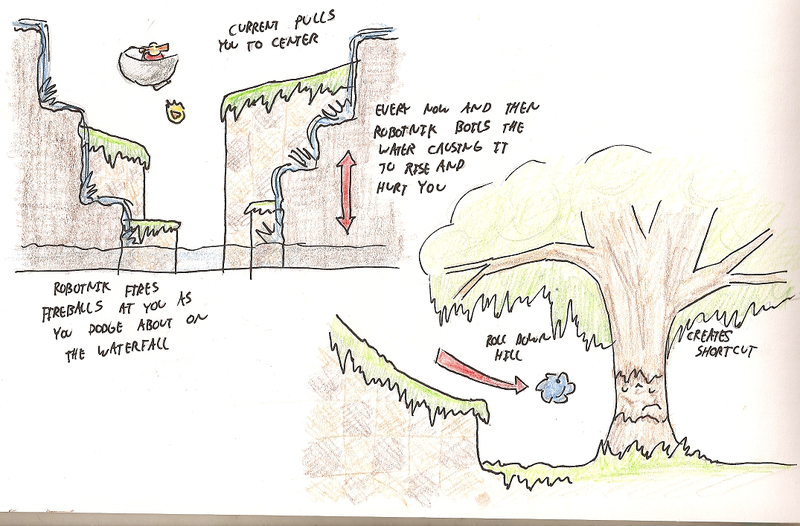 CURRENT PULLS
YOU TO CENTER
EVERY NOW AND THEN
ROBOTNIK BOILS THE
WATER CAUSING IT
TO RISE AND
HURT YOU
ROBOTNIK FIRES
FIREBALLS AT YOU AS
YOU DODGE ABOUT ON
THE WATERFALL
ROLL DOWN
HILL
CREATES
SHORTCUT